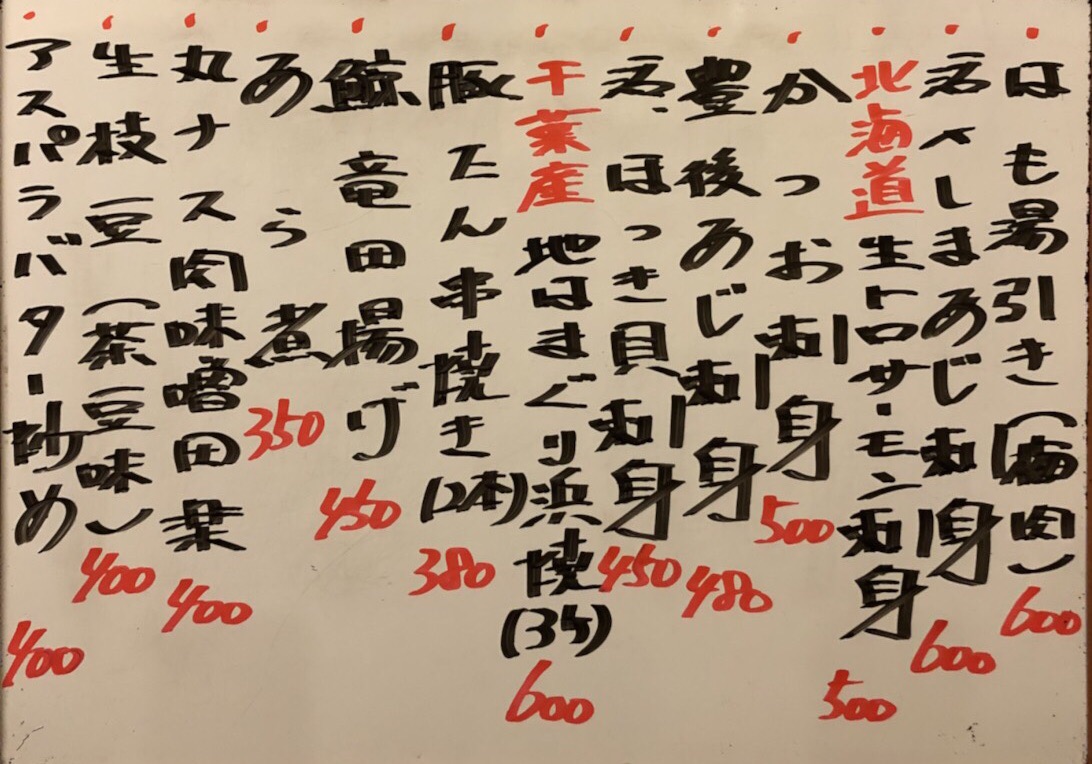 はも湯引き(梅肉) 600
しまあじ刺身 600
北海道生トロサーモン刺身 500
かつお刺身 500
豊後あじ刺身 480
ほっき貝刺身 450
千葉産地はまぐり浜焼(3ケ) 600
豚たん串焼き(2本) 380
鯨竜田揚げ 450
あら煮 350
丸ナス肉味噌田楽 400
生枝豆(茶豆味) 400
アスパラバター炒め 400